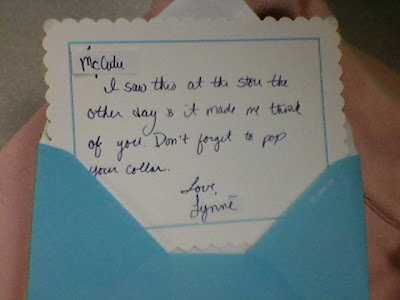 McCutie
I saw this at the store the
other day & it made me think
of you. Don't forget to pop
your collar.
Love,
Lynne